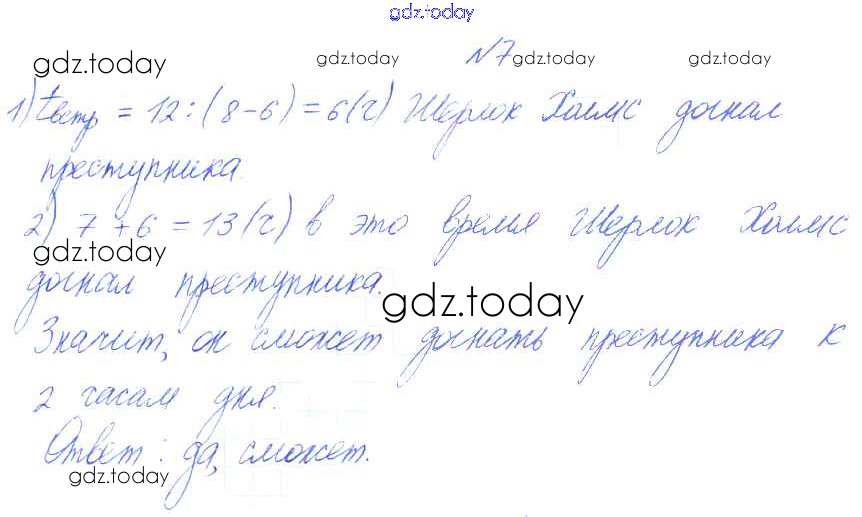 gdz.today
№7
gdz.today gdz.today gdz.today
1) tвстр = 12 : (8-6) = 6(ч) Шерлок Холмс догнал
преступника.
2) 7 + 6 = 13(ч) в это время Шерлок Холмс
gdz.today
догнал преступника.
gdz.today
Значит, он сможет догнать преступника к
2 часам дня.
Ответ: да, сможет.
gdz.today gdz.today